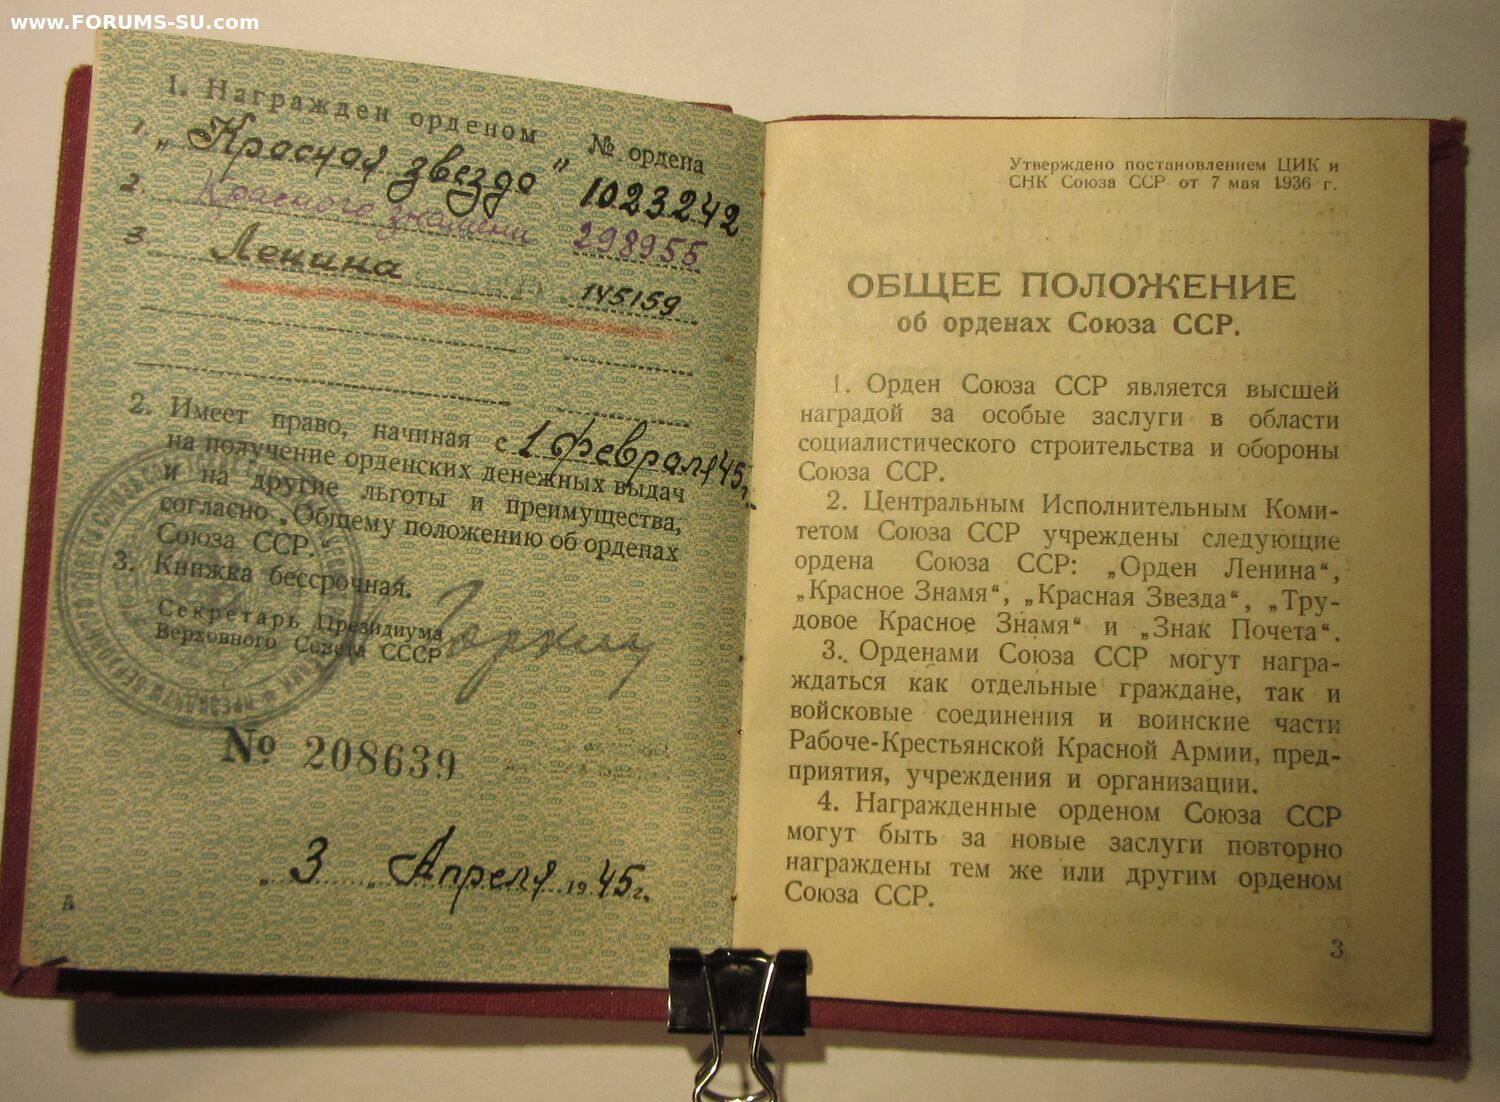 www.FORUMS-SU.com
1. Награжден орденом № ордена
1. „Красная звезда“ 1023242
2. Красного знамени 298955
3. Ленина 145159
2. Имеет право, начиная с 1 февраля 45г.
на получение орденских денежных выдач
и на другие льготы и преимущества,
согласно „Общему положению об орденах
Союза ССР.“
3. Книжка бессрочная.
Секретарь Президиума
Верховного Совета СССР
Горкин
№ 208639
„3 „ Апреля 1945г.
А
Утверждено постановлением ЦИК и
СНК Союза ССР от 7 мая 1936 г.
ОБЩЕЕ ПОЛОЖЕНИЕ
об орденах Союза ССР.
1. Орден Союза ССР является высшей
наградой за особые заслуги в области
социалистического строительства и обороны
Союза ССР.
2. Центральным Исполнительным Коми-
тетом Союза ССР учреждены следующие
ордена Союза ССР: „Орден Ленина“,
„Красное Знамя“, „Красная Звезда“, „Тру-
довое Красное Знамя“ и „Знак Почета“.
3. Орденами Союза ССР могут награ-
ждаться как отдельные граждане, так и
войсковые соединения и воинские части
Рабоче-Крестьянской Красной Армии, пред-
приятия, учреждения и организации.
4. Награжденные орденом Союза ССР
могут быть за новые заслуги повторно
награждены тем же или другим орденом
Союза ССР.
3